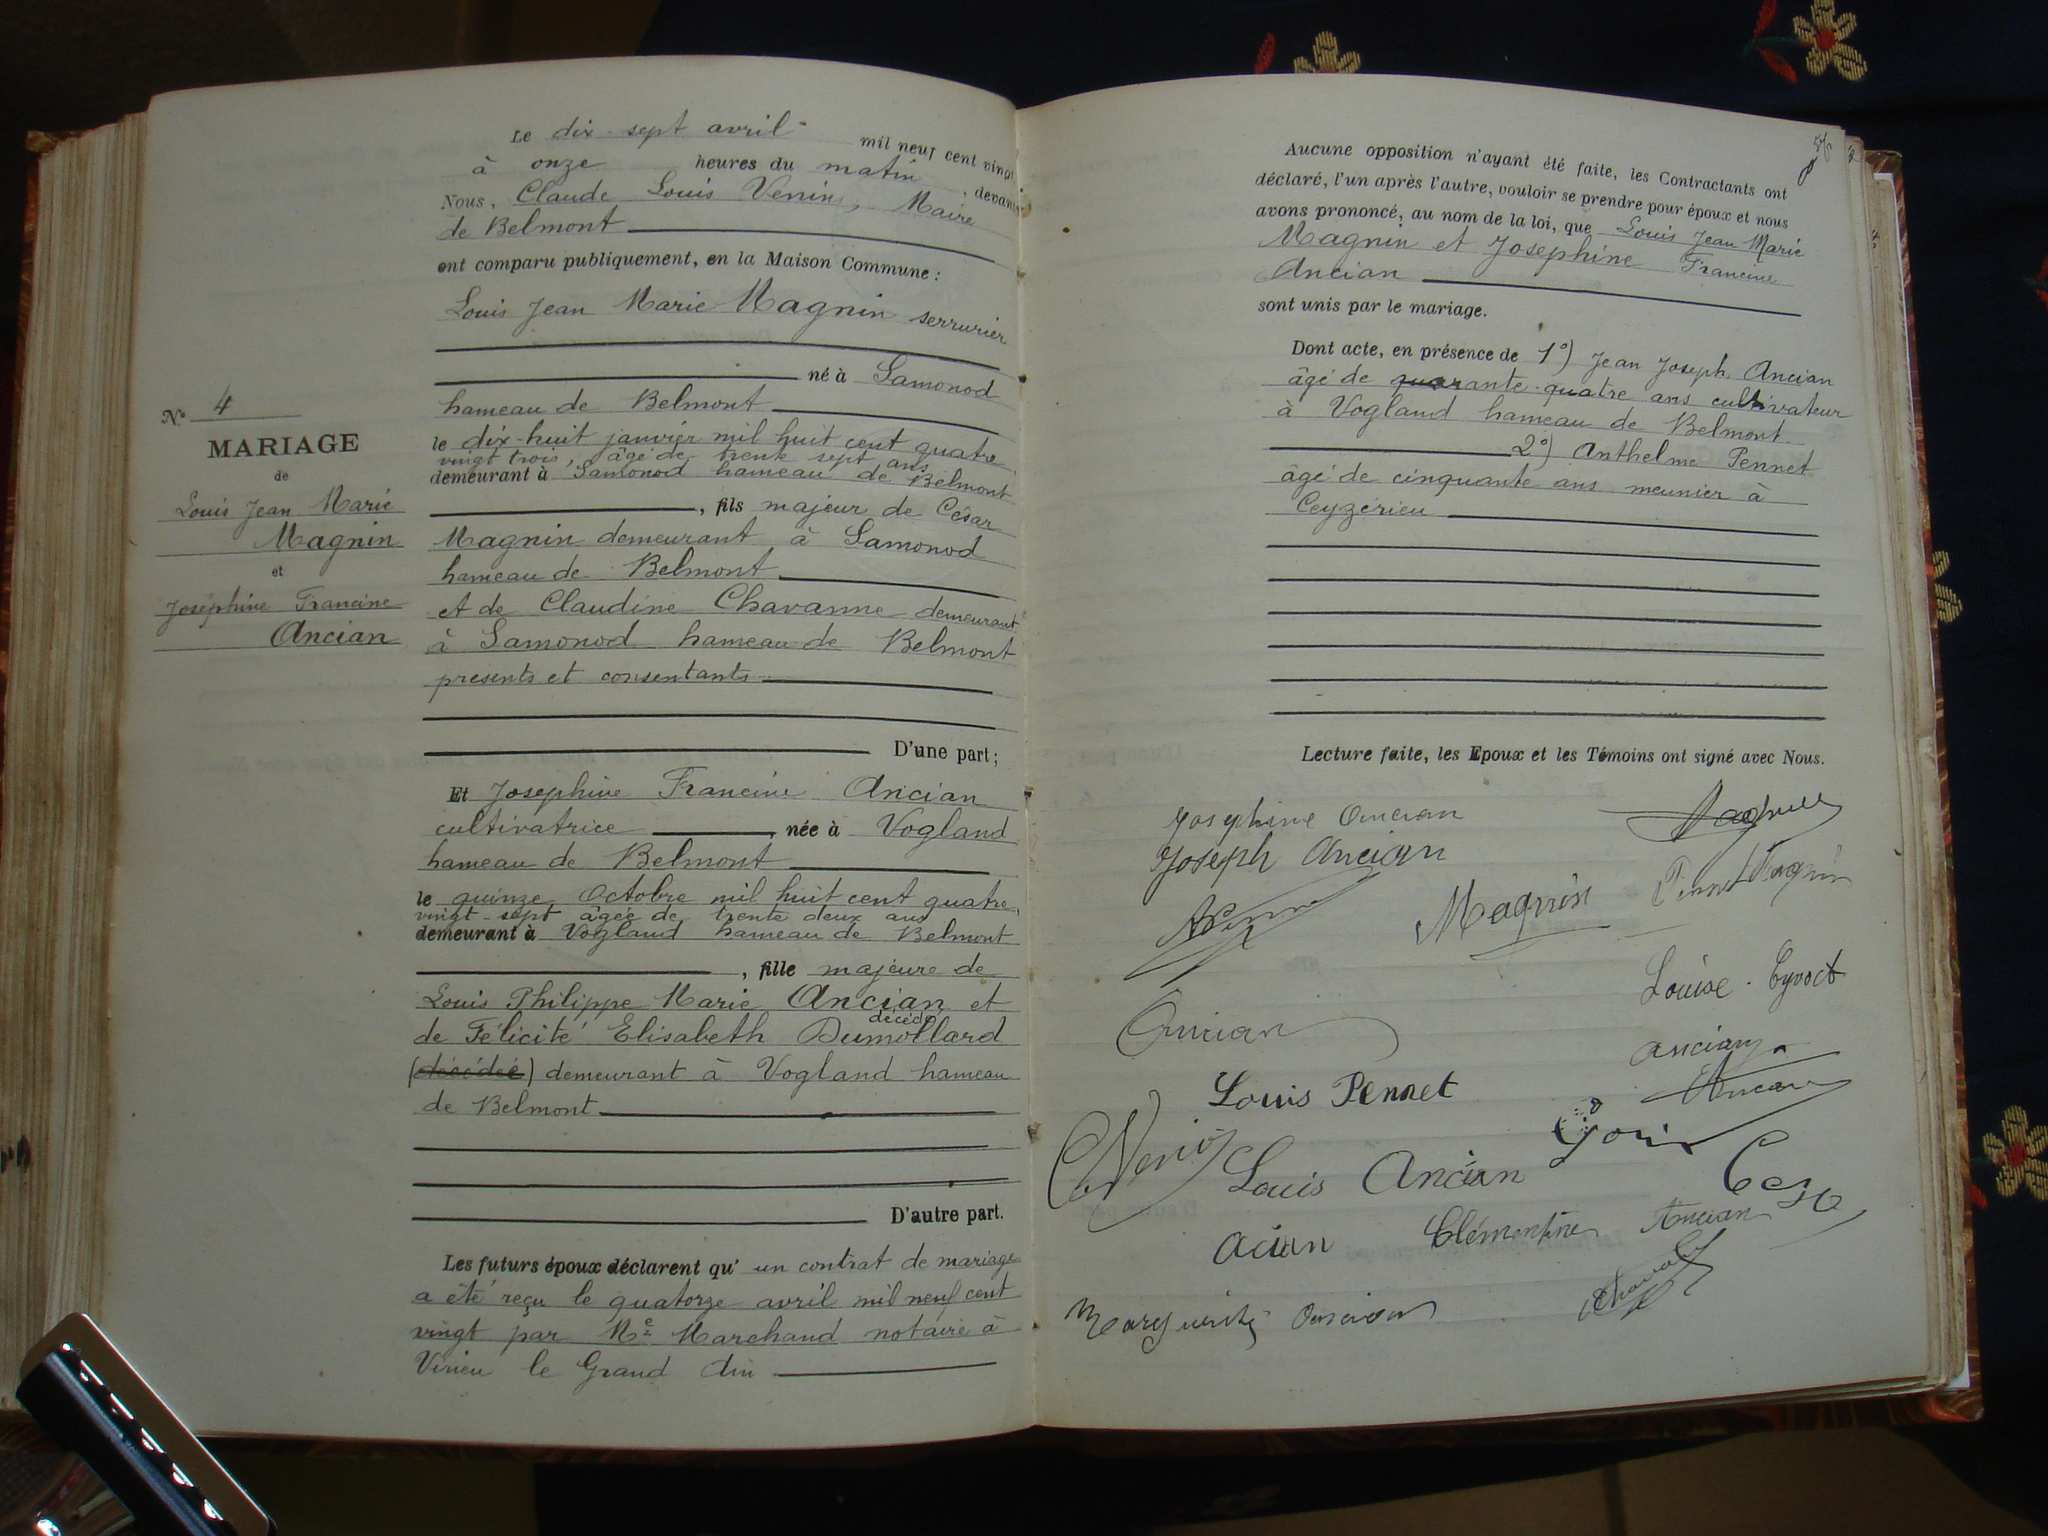 Le dix-sept avril mil neuf cent vingt
à onze heures du matin, devant
Nous, Claude Louis Maire
de Belmont
ont comparu publiquement, en la Maison Commune :
Louis Jean Marie Magnin serrurier
né à Samonod
hameau de Belmont
le dix-huit janvier mil huit cent quatre
vingt trois, âgé de trente sept ans
demeurant à Samonod hameau de Belmont
, fils majeur de César
Magnin demeurant à Samonod
hameau de Belmont
et de Claudine Chavanne demeurant
à Samonod hameau de Belmont
présents et consentants
D'une part ;
Et Josephine Francine Ancian
cultivatrice, née à Vogland
hameau de Belmont
le quinze Octobre mil huit cent quatre
vingt-sept âgée de trente deux ans
demeurant à Vogland hameau de Belmont
, fille majeure de
Louis Philippe Marie Ancian et
décédé
de Félicité Elisabeth Dumollard
(décédée) demeurant à Vogland hameau
de Belmont
D'autre part.
Les futurs époux déclarent qu' un contrat de mariage
a été reçu le quatorze avril mil neuf cent
vingt par Me Marchand notaire à
Virieu le Grand Ain
No 4
MARIAGE
de
Louis Jean Marie
Magnin
et
Joséphine Francine
Ancian
Aucune opposition n'ayant été faite, les Contractants ont
déclaré, l'un après l'autre, vouloir se prendre pour époux et nous
avons prononcé, au nom de la loi, que Louis Jean Marie
Magnin et Josephine Francine
Ancian
sont unis par le mariage.
Dont acte, en présence de 1°) Jean Joseph Ancian
âgé de quarante-quatre ans cultivateur
à Vogland hameau de Belmont
2°) Anthelme Pennet
âgé de cinquante ans meunier à
Ceyzérieu
Lecture faite, les Epoux et les Témoins ont signé avec Nous.
Josephine Ancian
Joseph Ancian
Magnin
Pennet Magnin
Louise Eyvoct
Ancian
ancian
Louis Pennet
Louis Ancian
Acian
Clémentine Ancian
Marguerite Ancian